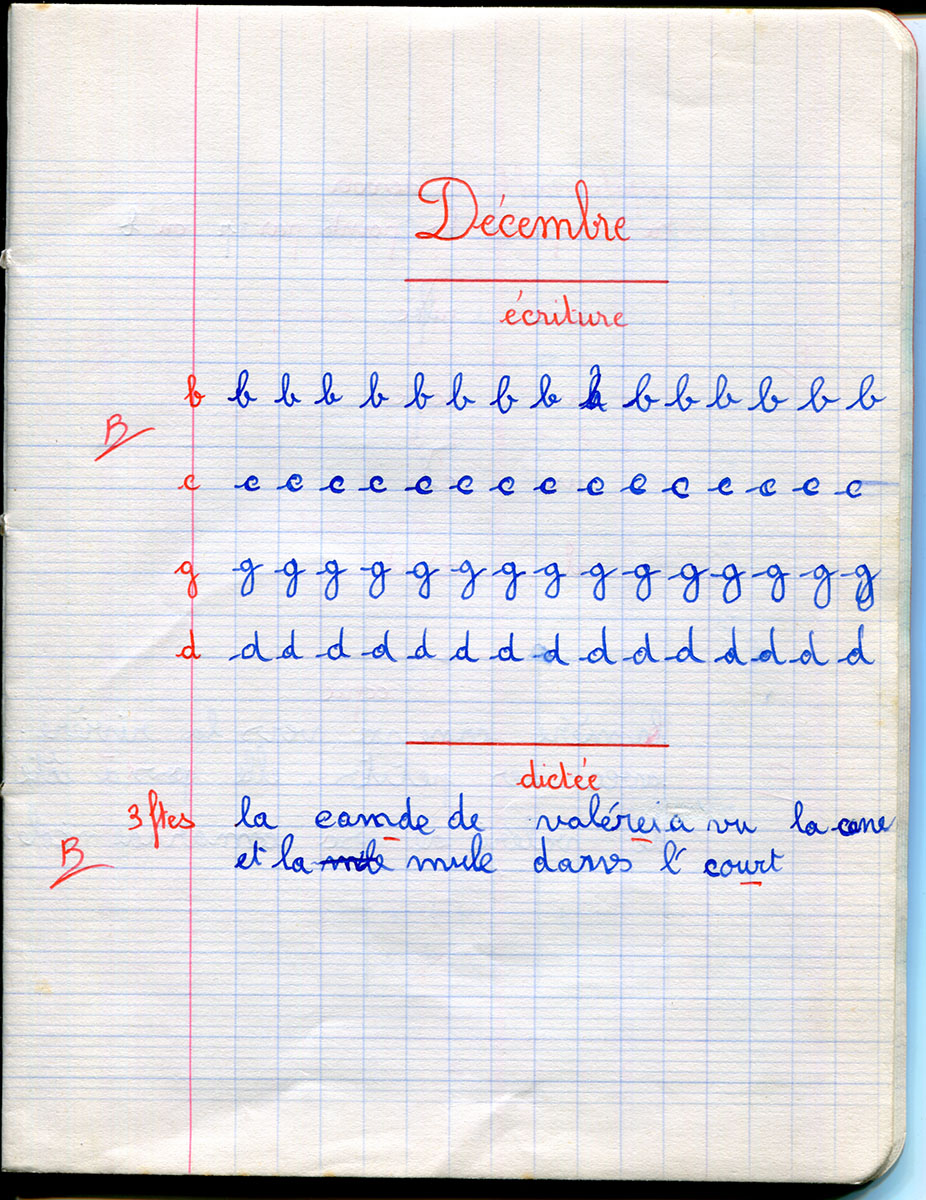 Décembre
écriture
b b b b b b b b b b b b b b b b
B
c c c c c c c c c c c c c c c c
g g g g g g g g g g g g g g g g
d d d d d d d d d d d d d d d d
dictée
3 ftes la camde de valérei a vu la cane
B et la mule dans l' court